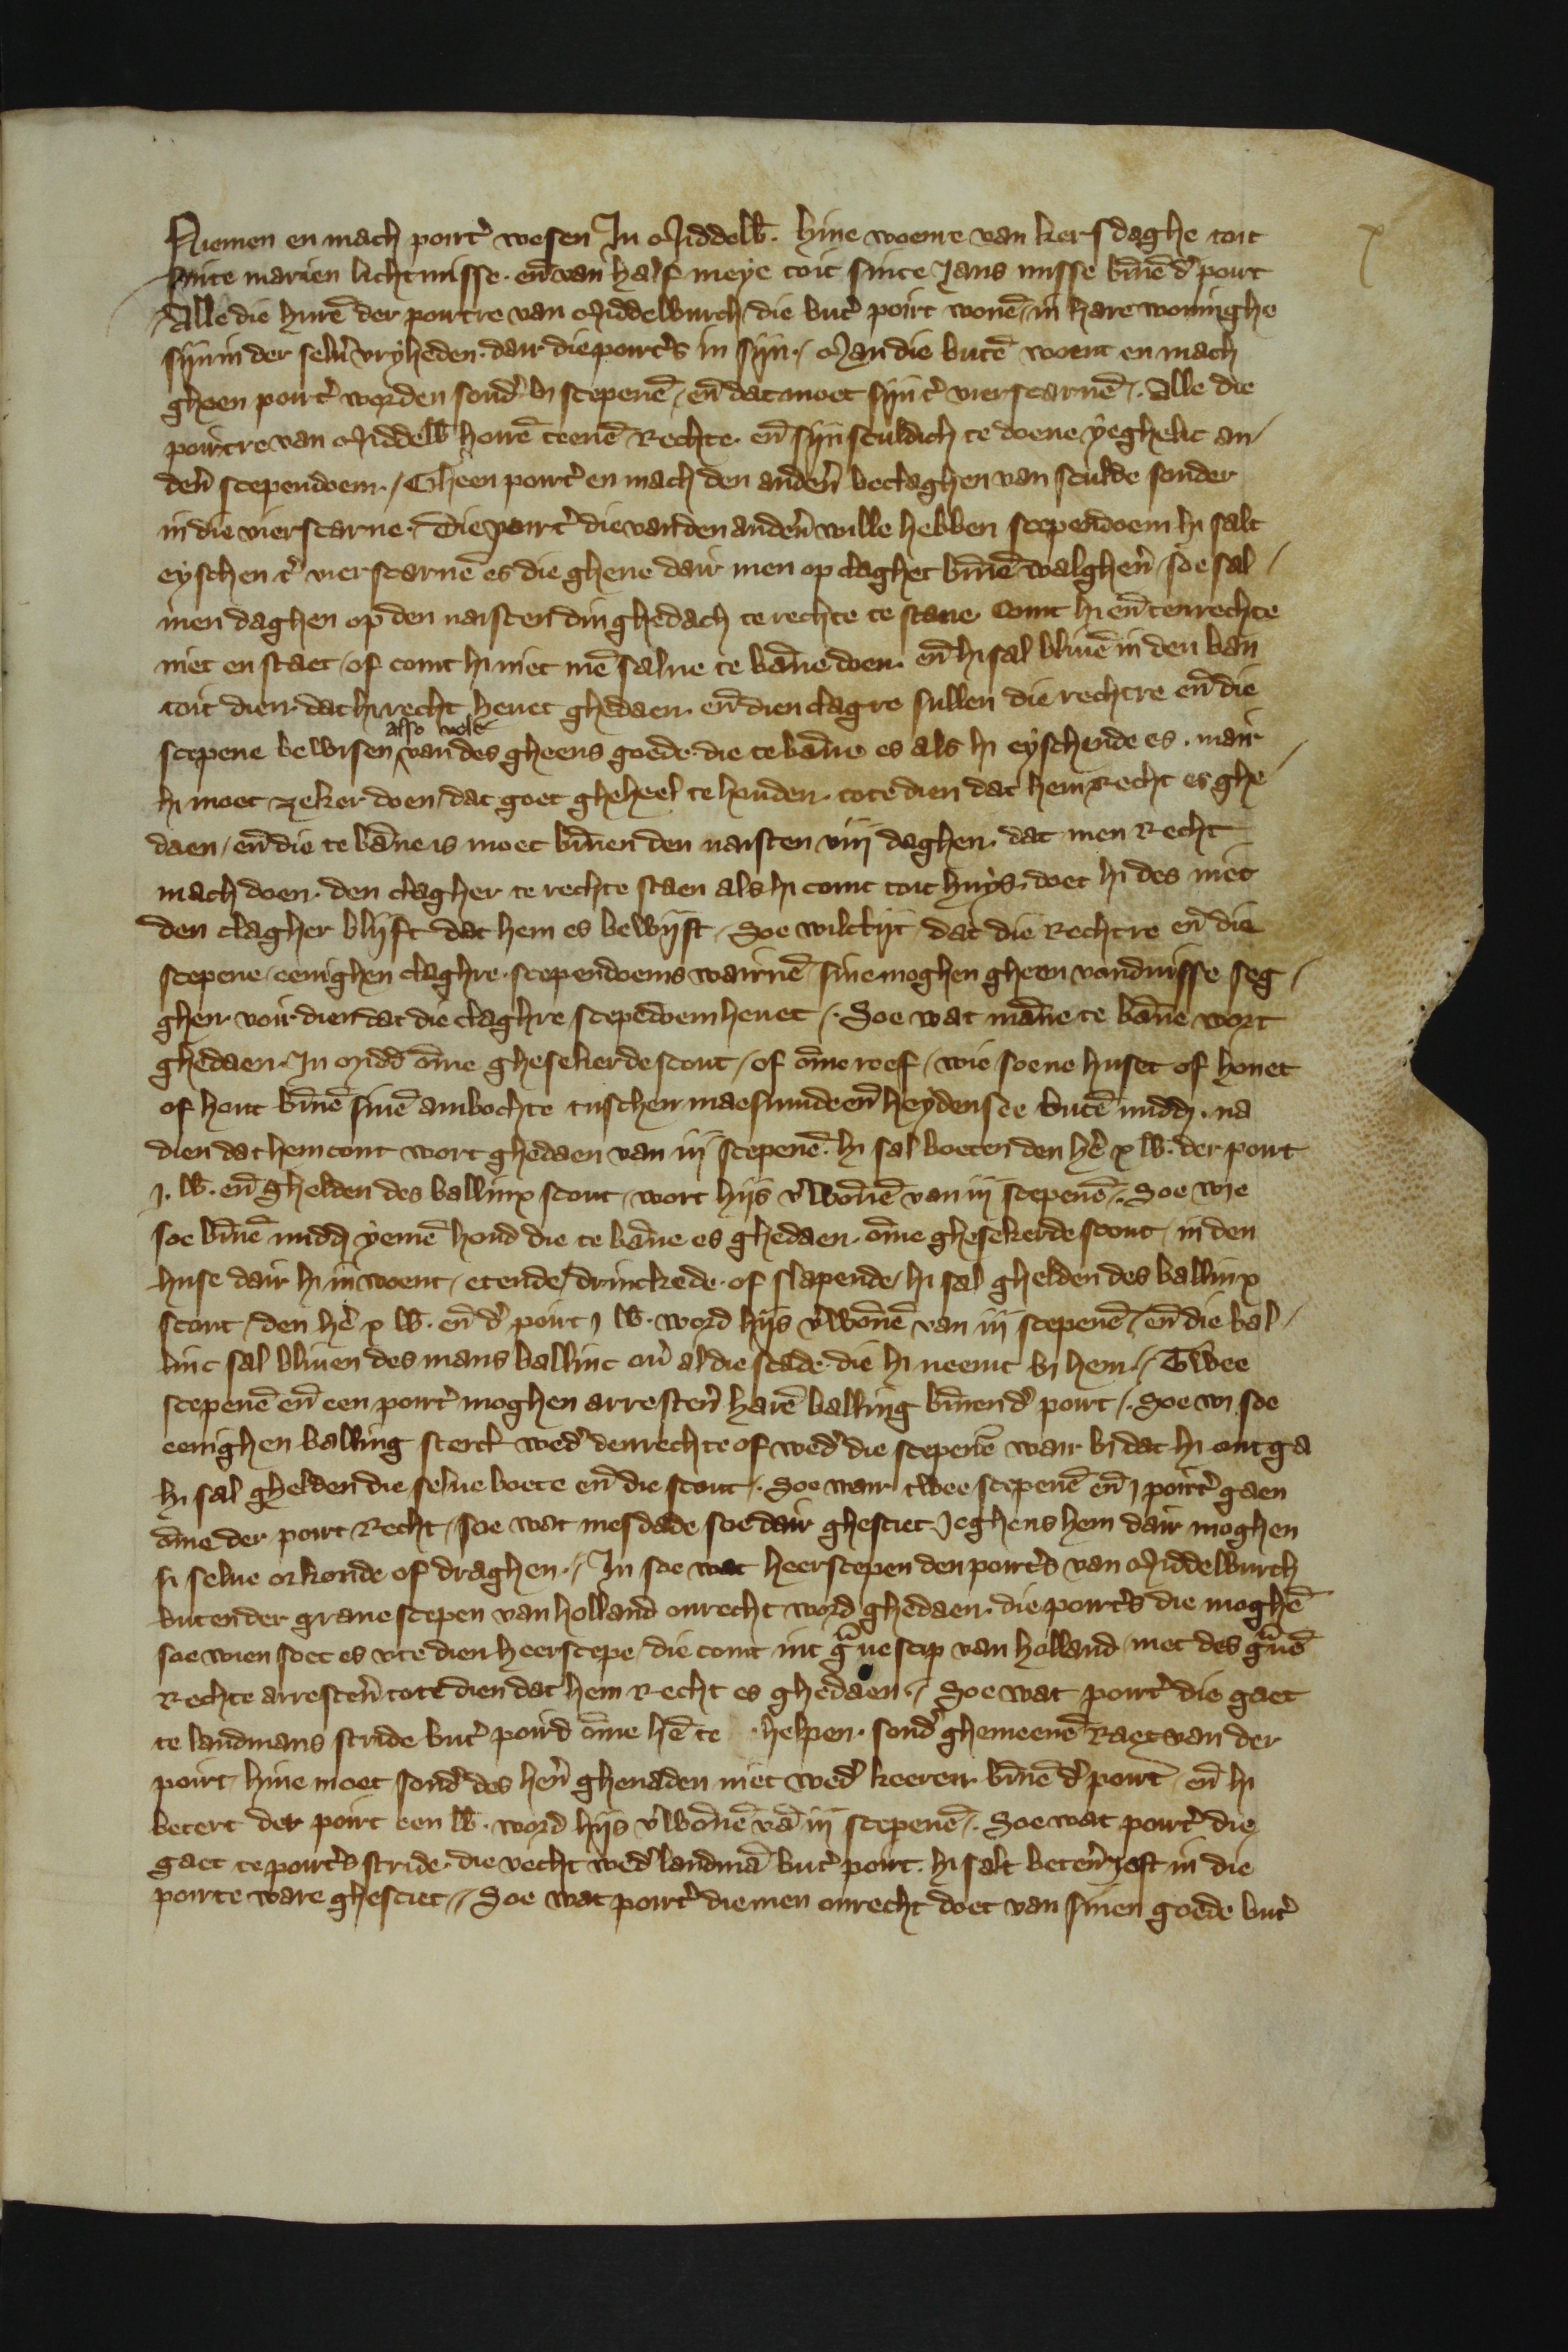 x
Niemen en mach poirt᷑ wesen In Middelb̄. hine woene van kersdaghe toit
sinte marien lichtmisse. en̄ van half meye toit sinte Jans misse bīnē d᷑ poirt
Alle die hurē der poirtre van Middelburch / die but᷑ poirt wonē / in hare woninghe
sijn in der selu᷑ vryheden. dair die poirt᷑s in sijn. / Man die butē woent en mach
gheen poirt᷑ worden sond᷑ bi scepenē / en̄ dat moet sijn t᷑ vierscarnē /. Alle die
poirtre van Middelb̄ houē teenē Rechte. en̄ sijn sculdich te doene yeghelic an /
den̄ scependoem. / Gheen poirt᷑ en mach den anden̄ beclaghen van sculde sonder
in die vierscarne. / Die poirt᷑ die van den anden̄ wille hebben scependoem hi salt
eyschen t᷑ vierscarnē es die ghene dair men op claghet bīnē walghen̄ / soe sal /
men daghen op den naisten dinghedach te rechte te stane. Comt hi en̄ tenrechte
niet en staet / of comt hi niet mē salne te bāne doen. en̄ hi sal bliuē in den ban
toit dien. dat hi recht heuet ghedaen. en̄ dien clagre sullen die rechtre en̄ die
scepene bewisen also vele van des gheens goede. die te bāne es als hi eyschende es. mair /
hi moet zeker doen / dat goet gheheel te houden. tote dien dat hem recht es ghe /
daen / en̄ die te bāne is moet bīnen den naisten viij daghen. dat men Recht
mach doen. den clagher te rechte staen als hi comt toit huys. doet hi des niet
den clagher blijft dat hem es bewijst / Soe wilctijt dat die Rechtre en̄ die
scepene / eenighen claghre. scependoems wairnē / sine moghen gheen vondnisse seg /
ghen voir dien dat die claghre scepēdoem heuet /. Soe wat māne te bāne wort
ghedaen. In Midd̄ ōme ghesekerde scout / of ōme roef / wie soene huset of houet
of hout bīnē sinē ambochte tuschen maesmunde en̄ heydensee butē midd̄. na
dien dat hem cont wort ghedaen van iij scepenē. hi sal boeten den he᷑ x lb̄. der poirt
j. lb̄. en̄ ghelden des ballinx scout / wort hijs v᷑wōnē van iij scepenē /. Soe wie
soe bīnē midd̄ yemē houd die te bāne es ghedaen. ōme ghesekerde scout / in den
huse dair hi in woent / etende / drinckēde. of slapende / hi sal ghelden des ballinx
scout / den he᷑ x lb̄. en̄ d᷑ poirt j lb̄. word hijs v᷑wōnē van iij scepenē / en̄ die bal /
linc sal bliuen des mans ballinc ou᷑ al die scade. die hi neemt bi hem. / Twee
scepenē en̄ een poirt᷑ moghen arresten̄ harē balling bīnen d᷑ poirt /. Soe wi soe
eenighen balling sterct wed᷑ denrechte of wed᷑ die scepenē wair bi dat hi ontga
hi sal ghelden die selue boete en̄ die scout /. Soe wair twee scepenē en̄ j poirt᷑ gaen
ōme der poirt Recht / soe wat mesdade soe dair ghesciet Jeghens hem dair moghen
si selue orkonde of draghen. / In soe wat heerscepen den poirt᷑s van Middelburch
buten der graue scepen van holland onrecht word ghedaen. die poirt᷑s die moghē
soe wien soet es vte dien heerscepe / die comt int gᵃue scip van holland / met des gᵃuē
Rechte arresten̄ tote dien dat hem Recht es ghedaen. / Soe wat poirt᷑ die gaet
te landmans stride but᷑ poird ōme hē te helpen. sond᷑ ghemeenē Raet van der
poirt / hine moet sond᷑ des hen̄ ghenaden niet wed᷑ keeren bīnē d᷑ poirt / en̄ hi
betert der poirt een lb̄. word hijs v᷑wōnē vā iij scepenē /. Soe wat poirt᷑ die
gaet te poirt᷑s stride. die vecht wed᷑ landmā but᷑ poirt. hi salt beten̄ joft in die
poirte ware ghesciet // Soe wat poirt᷑ diemen onrecht doet van sinen goede but᷑